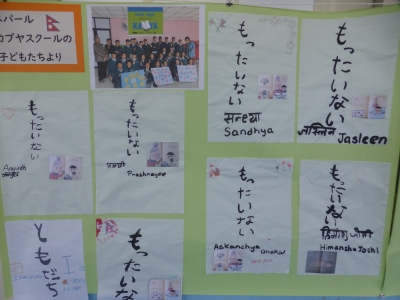 ネパール
カブヤスクールの
子どもたちより
KAVYA
もったいない
सन्ध्या
Sandhya
もったいない
जस्लिन Jasleen
もったいない
Aayush
もったいない
Prashnajee
もったいない
Aakanchya Dhakal
もったいない
हिमांशु जोशी
Himanshu Joshi
ともだち
もったいな